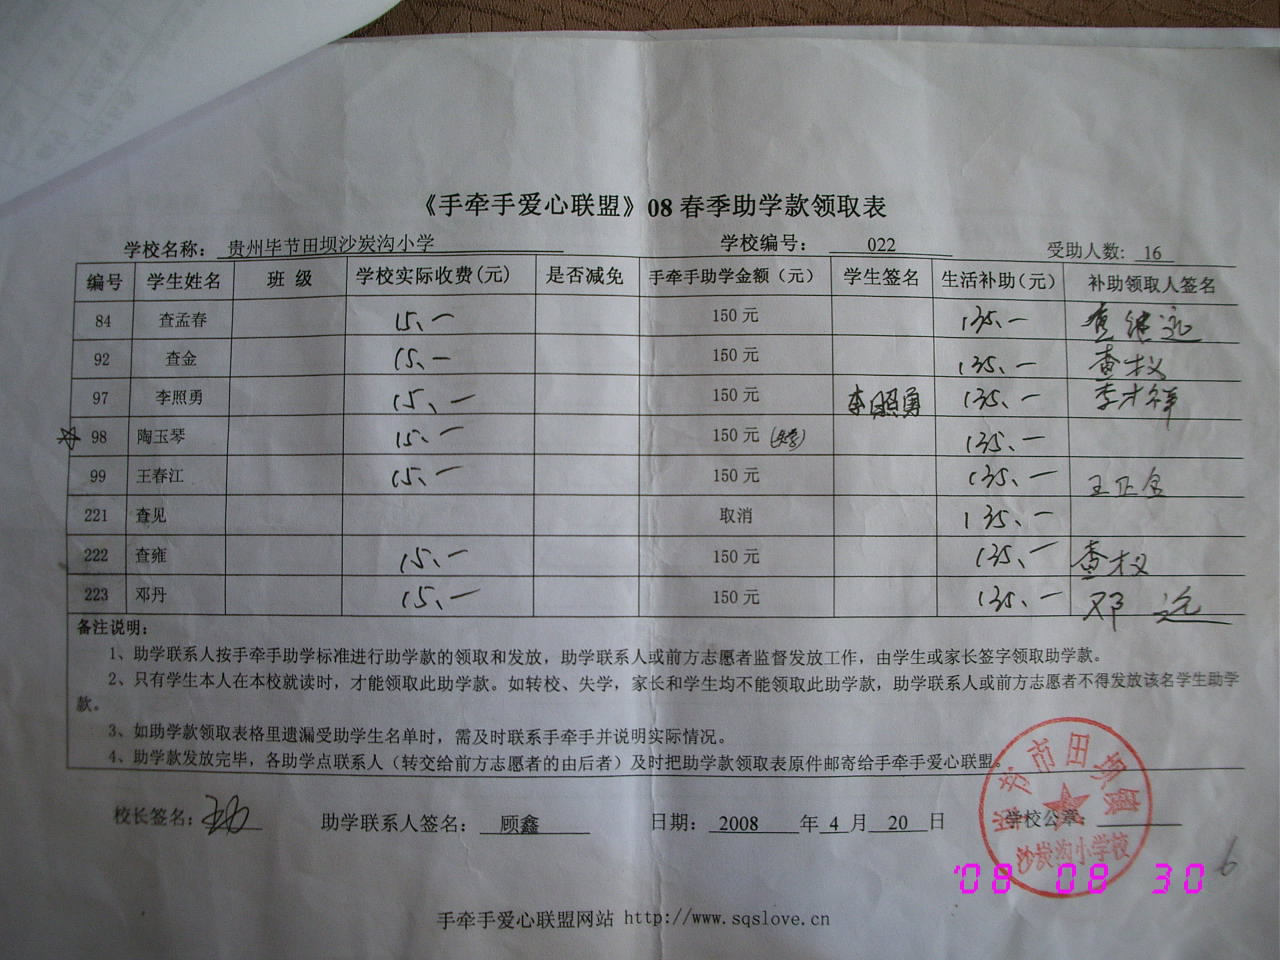 《手牵手爱心联盟》08 春季助学款领取表
学校名称： 贵州毕节田坝沙炭沟小学 学校编号： 022 受助人数： 16
编号 学生姓名 班 级 学校实际收费(元) 是否减免 手牵手助学金额（元） 学生签名 生活补助(元) 补助领取人签名
84 查孟春 15.— 150 元 135.— 查继远
92 查金 15.— 150 元 135.— 查权
97 李照勇 15.— 150 元 李照勇 135.— 李才祥
98 陶玉琴 15.— 150 元 135.—
99 王春江 15.— 150 元 135.— 王正全
221 查见 取消 135.—
222 查雍 15.— 150 元 135.— 查权
223 邓丹 15.— 150 元 135.— 邓远
备注说明：
1、助学联系人按手牵手助学标准进行助学款的领取和发放，助学联系人或前方志愿者监督发放工作，由学生或家长签字领取助学款。
2、只有学生本人在本校就读时，才能领取此助学款。如转校、失学，家长和学生均不能领取此助学款，助学联系人或前方志愿者不得发放该名学生助学
款。
3、如助学款领取表格里遗漏受助学生名单时，需及时联系手牵手并说明实际情况。
4、助学款发放完毕，各助学点联系人（转交给前方志愿者的由后者）及时把助学款领取表原件邮寄给手牵手爱心联盟。
校长签名： 助学联系人签名： 顾鑫 日期： 2008 年 4 月 20 日 学校公章
毕节市田坝镇
沙炭沟小学校
'08 08 30
6
手牵手爱心联盟网站 http://www.sqslove.cn